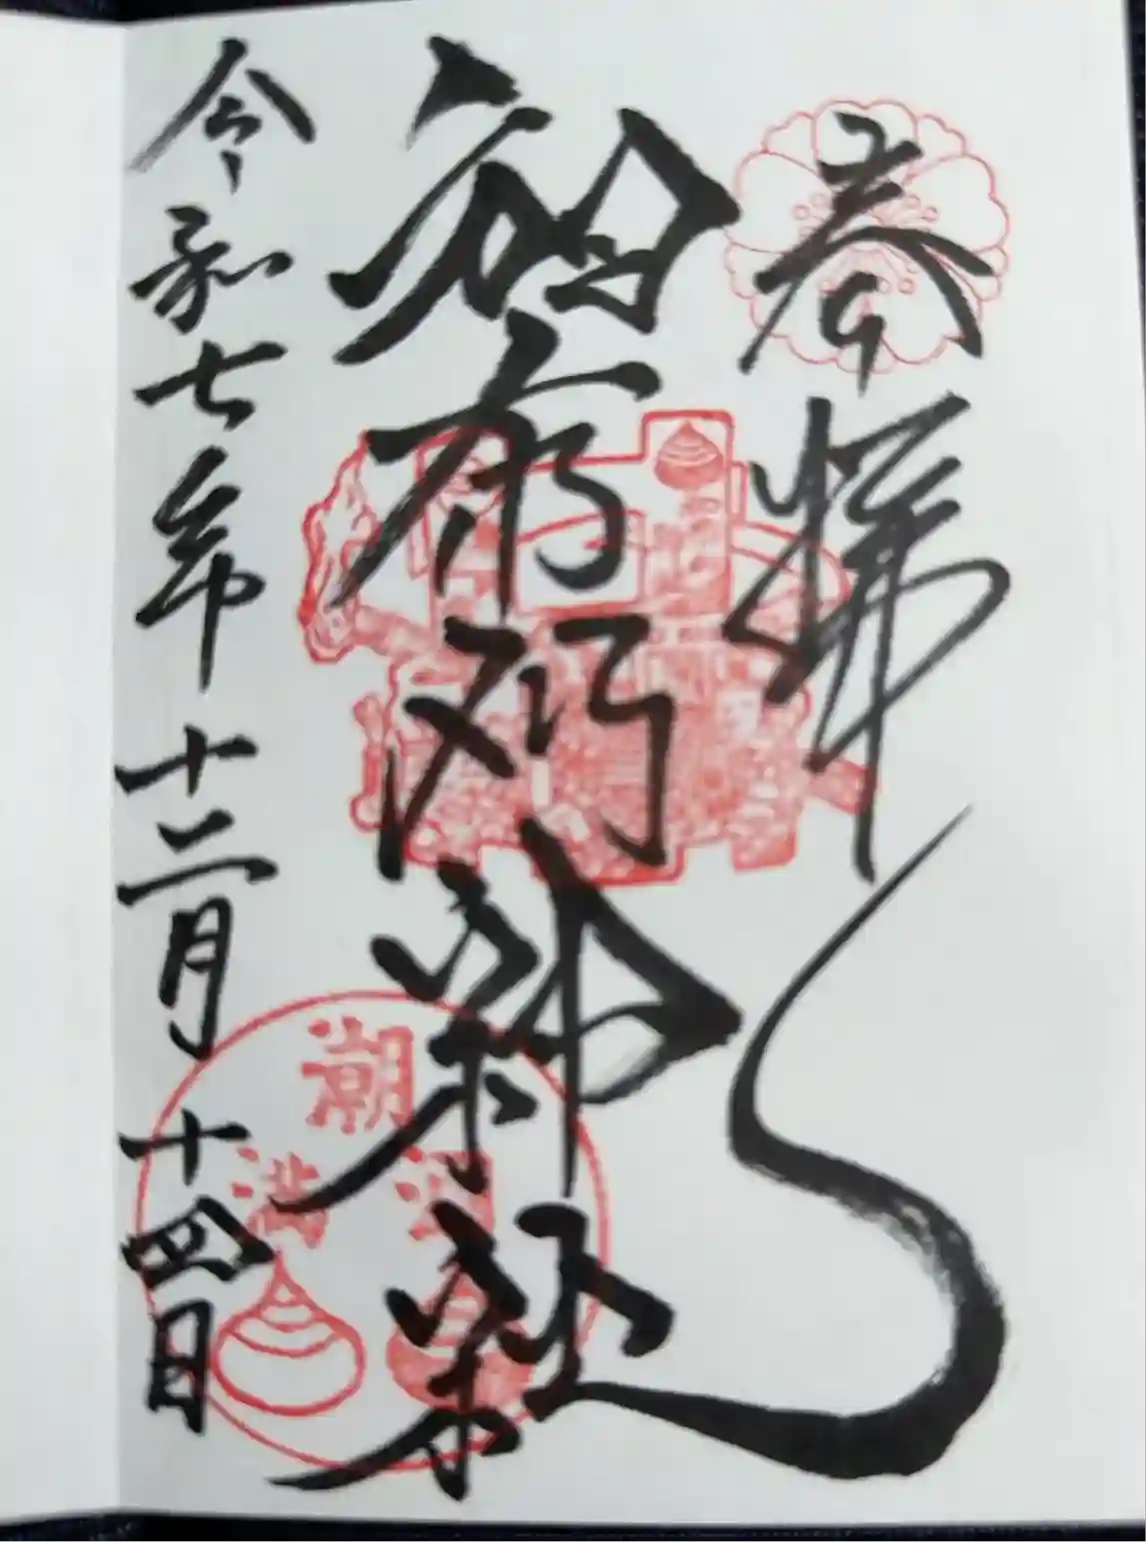 奉拝
和布刈神社
令和七年十二月十四日
潮
満